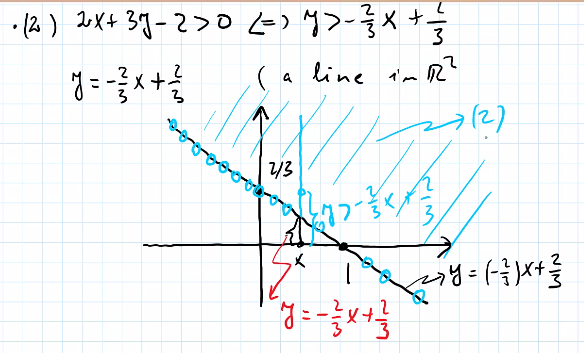 ·(2) 2x+3y-2>0 <=> y>-2/3x+2/3
y=-2/3x+2/3 (a line in ℝ²
(2)
2/3
y>-2/3x+2/3
x
1
y=(-2/3)x+2/3
y=-2/3x+2/3